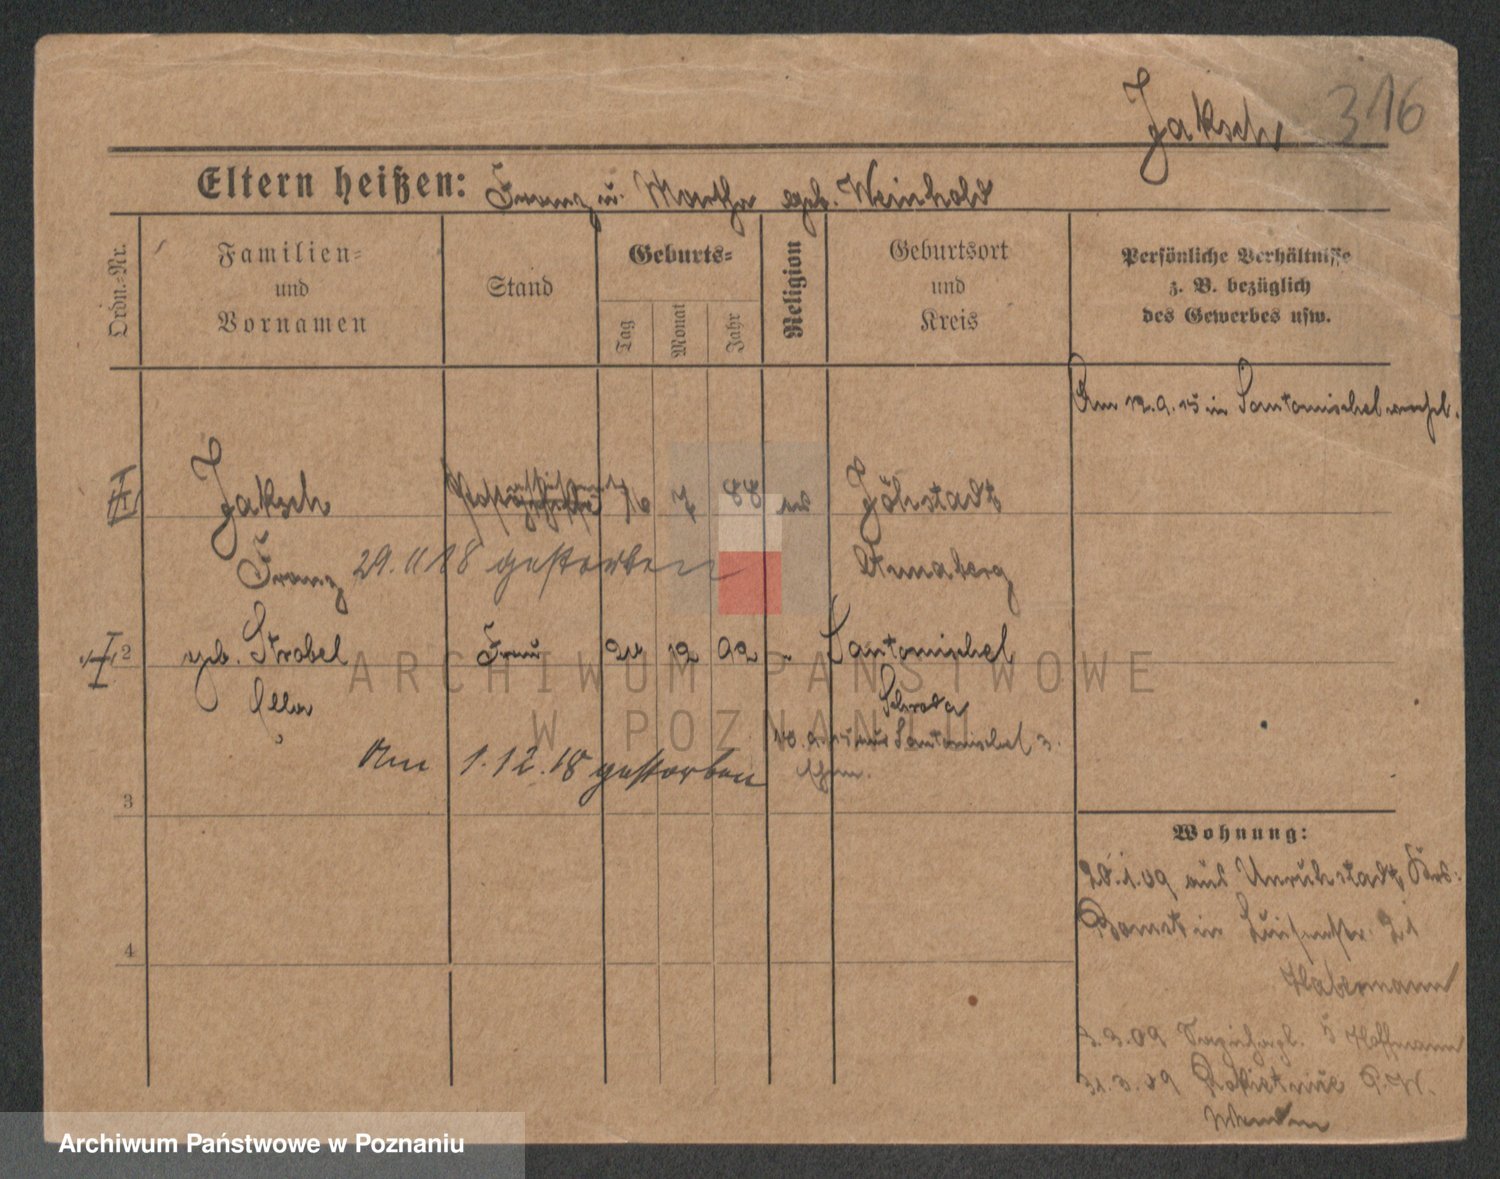 Jaksch 316
Eltern heißen: Franz u. Martha geb. Weinhold
Ordn.-Nr.
Familien-
und
Vornamen
Stand
Geburts-
Tag
Monat
Jahr
Religion
Geburtsort
und
Kreis
Persönliche Verhältnisse
z. B. bezüglich
des Gewerbes usw.
Am 12.9.15 in Santomischel verehel.
Jaksch 16 7 88 Jöhstadt
Franz 29.11 18 gestorben Annaberg
2 geb. Strobel Frau 24 12 92 Santomischel
Ella Schroda
aus Santomischel z.
Am 1.12.18 gestorben Ehem.
3
Wohnung:
28.1.09 aus Unruhstadt, Krs.
Bomst in Luisenstr. 21
4
Habermann
3.3.09 Hoffmann
31.3.09 Rokietnice P.W.
ARCHIWUM PAŃSTWOWE
W POZNANIU
Archiwum Państwowe w Poznaniu